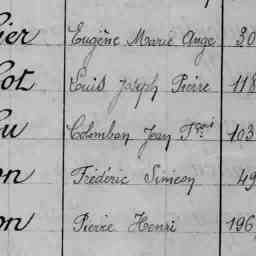 ier Eugène Marie Ange 30
ot Louis Joseph Pierre 118
u Colomban Jean Frçois 103
on Frédéric Siméon 49
on Pierre Henri 196